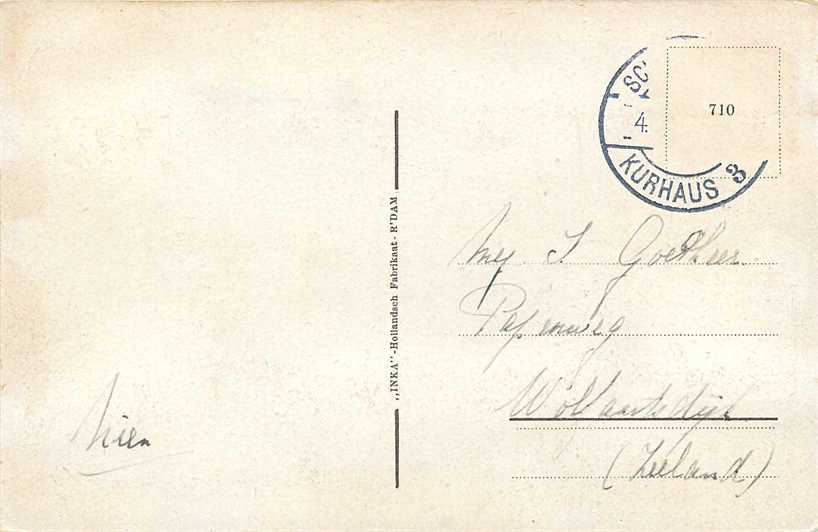 SC
4.
KURHAUS 3
710
"INKA"-Hollandsch Fabrikaat - R'DAM
Mej. J. Goetheer
Papenweg
Wolfaartsdijk
(Zeeland)
Nien